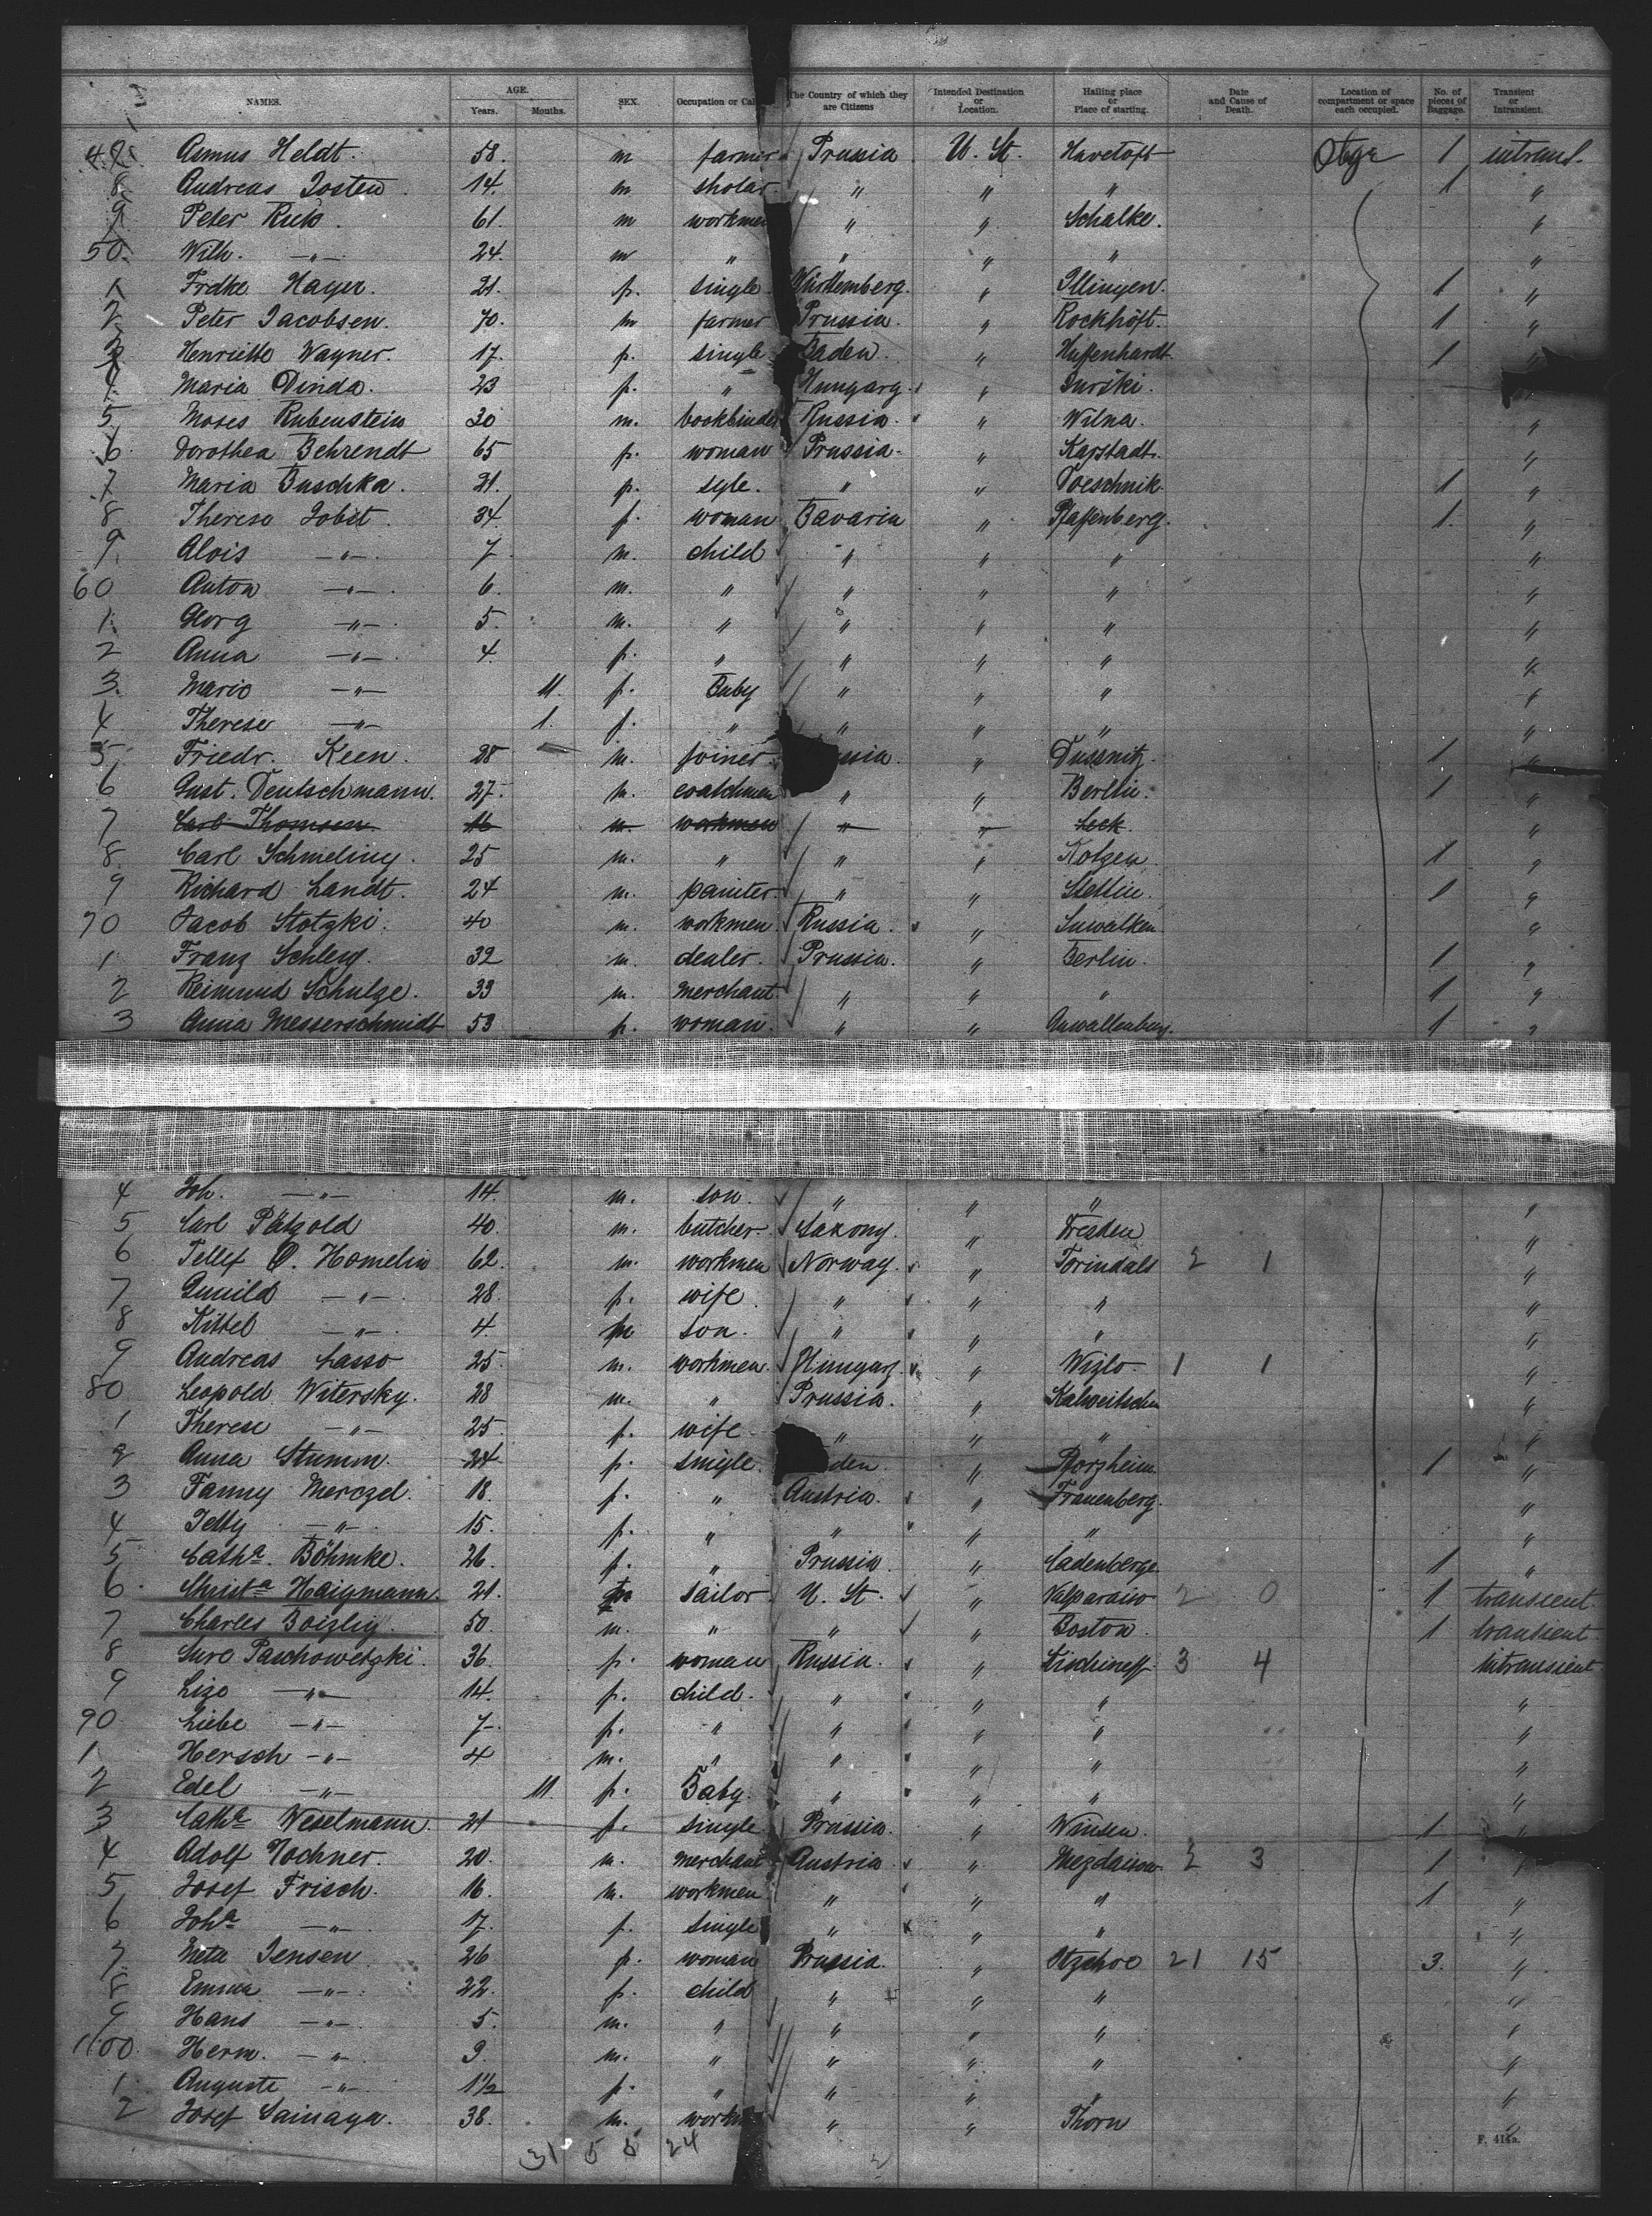 NAMES. AGE. Years. Months. SEX. Occupation or Cal The Country of which they are Citizens Intended Destination or Location. Hailing place or Place of starting. Date and Cause of Death. Location of compartment or space each occupied. No. of pieces of Baggage. Transient or Intransient.
47. Asmus Heldt. 58. m farmer Prussia U. St. Havetoft 1 intrans.
8. Andreas Josten. 14. m sholar. " " " 1 "
9 Peter 61. m workmen " " Schalke. "
50. Wilh. -"- 24. m " " " " "
1 Frdke Hager. 21. f. single Württemberg. " Illingen. 1 "
2 Peter Jacobsen. 70. m farmer Prussia. " Rockhöft. 1 "
3 Henriette Wagner. 17. f. single Baden. " Huffenhardt 1 "
4. Maria Dinda. 23 f. " Hungary. " "
5 Moses Rubenstein 30 m. bookbinder Russia. " Wilna. "
6. Dorothea Behrendt 65 f. woman Prussia. " Karstadt. "
7 Maria Buschka. 21. f. sgle. " " 1 "
8 Therese Jobst. 34. f. woman Bavaria " Pfaffenberg. 1. "
9. Alois -"- 7. m. child " " " "
60 Anton -"- 6. m. " " " " "
1. Georg -"- 5. m. " " " " "
2 Anna -"- 4. f. " " " " "
3. Marie -"- 11. f. Baby " " " "
4 Therese -"- 1. f. " " " " "
5 Friedr. Keen. 28 m. joiner. ssia. " Dussnitz. 1 "
6 Gust. Deutschmann. 27. m. coatchmen " " Berlin. 1 "
7 Carl Thomsen 16 m. workmen " " Leck. "
8. Carl Schmeling. 25 m. " " " Kotzen. 1 "
9 Richard Landt. 24 m. painter. " " Stettin. 1 "
70 Jacob Stotzki. 40 m. workmen. Russia. " Suwalken "
1 Franz Schleg. 32 m. dealer. Prussia. " Berlin. 1 "
2 Reimund Schulze. 33 m. merchant. " " " 1 "
3 Anna Messerschmidt 53 f. woman. " " 1 "
4 Joh. -"- 14. m. son. " " " "
5 Carl Pätzold 40. m. butcher. Saxony. " Dresden "
6 Tellef O. Homelin 62. m. workmen Norway. " Torindals 2 1 "
7 Gunild -"- 28. f. wife. " " " "
8 Kittel -"- 4. m son. " " " "
9 Andreas Lasso 25. m. workmen. Hungary. " Wizlo. 1 1 "
80. Leopold Witersky. 28 m. " Prussia. " Kalweitschen "
1 Therese -"- 25. f. wife " " " "
2 Anna Stumm 24 f. single. den. " Pforzheim. 1 "
3 Fanny Merczel. 18. f. " Austria. " Frauenberg. "
4 Jetty -"- 15. f. " " " " "
5 Catha. Böhmke. 26. f. " Prussia. " Cadenberge 1 "
6. Christa Haigmann. 21. m sailor U. St. " Valparaiso 2 0 1 transient.
7 Charles Boizlig. 50. m. " " " Boston. 1 transient.
8 Sure Paschowetzki. 36. f. woman Russia. " 3 4 intransient
9 Lize -"- 14. f. child. " " " "
90 Liebe -"- 7. f. " " " " "
1 Hersch -"- 4 m. " " " " "
2 Edel -"- 11. f. Baby. " " " "
3 Catha Weselmann. 21 f. single Prussia. " Winsen. 1 "
4 Adolf Tochner. 20. m. merchant Austria. " 2 3 1 "
5 Josef Frisch. 16 m. workmen " " " 1 "
6 Joha -"- 17. f. single " " " "
7 Meta Jensen 26 f. woman Prussia. " Itzehoe 21 15 3. "
8 Emma -"- 22. f. child " " " "
9 Hans -"- 5. m. " " " " "
1100. Herm. -"- 3. m. " " " " "
1. Auguste -"- 1½ f. " " " " "
2 Josef Sainaga. 38. m. workm " " Thorn "
31 5 5 24
F. 414a.